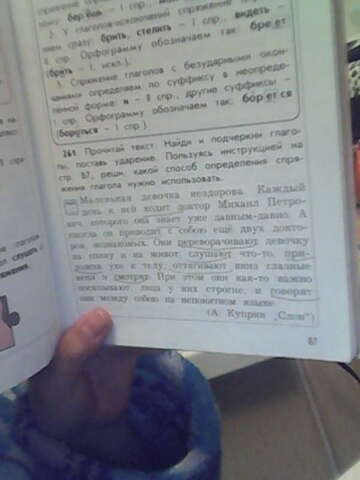 2. У глаголов-исключений спряжение
сразу: брить, стелить – I спр., видеть –
II спр. Орфограмму обозначаем так: бреет
(брить – I, искл.).
3. Спряжение глаголов с безударными окон-
чаниями определяем по суффиксу в неопреде-
лённой форме: и – II спр., другие суффиксы –
I спр. Орфограмму обозначаем так: борется
(бороться – I спр.)
261. Прочитай текст. Найди и подчеркни глаго-
лы, поставь ударение. Пользуясь инструкцией на
стр. 87, реши, какой способ определения спря-
жения глагола нужно использовать.
Маленькая девочка нездорова. Каждый
день к ней ходит доктор Михаил Петро-
вич, которого она знает уже давным-давно. А
иногда он приводит с собою ещё двух докто-
ров, незнакомых. Они переворачивают девочку
на спину и на живот, слушают что-то, при-
ложив ухо к телу, оттягивают вниз глазные
веки и смотрят. При этом они как-то важно
посапывают, лица у них строгие, и говорят
они между собою на непонятном языке.
(А. Куприн „Слон")
87